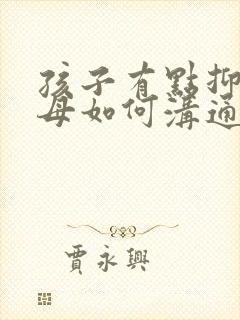 孩子有點抑
母如何溝通
賈永興